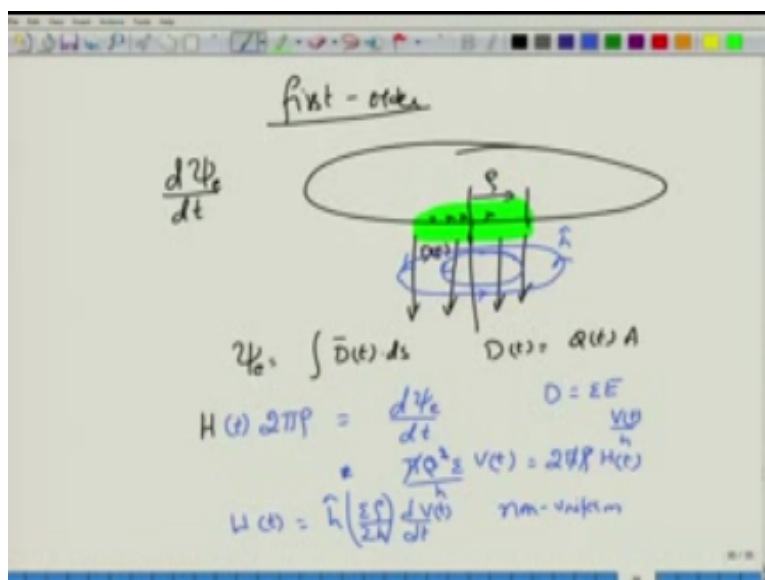 first-order
dΨe/dt
ρ
D(t)
ĥ
Ψe = ∫ D̄(t)·ds   D(t) = Q(t) A
H(t) 2πρ = dΨe/dt   D = εE
V(t)/h
πρ²ε/h V(t) = 2πρ H(t)
H(t) = ĥ (ερ/2h) dV(t)/dt   non-uniform